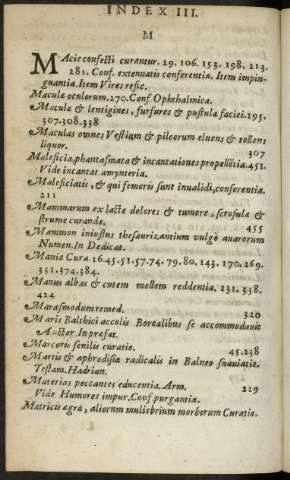 INDEX III.
M
MAcie confecti curantur. 29. 106. 153. 198. 213.
281. Conf. extenuatis conferentia. Item impin-
guantia. Item Vires refic.
Maculæ oculorum. 270. Conf Ophthalmica.
Maculæ & lentigines, furfures & pustulæ faciei. 295.
307. 308. 338
Maculas omnes Vestium & pileorum eluens & tollens
liquor. 307
Maleficia, phantasmata & incantationes propellentia. 451.
Vide incantat. amynteria.
Maleficiatis, & qui femoris sunt inualidi, conferentia.
211
Mammarum ex lacte dolores & tumore, scrofulæ &
strumæ curandæ. 455
Mammon iniustus thesaurizantium vulgò auarorum
Numen. In Dedicat.
Mania Cura. 16. 45. 51. 57. 74. 79. 80. 143. 170. 269.
331. 374. 384.
Manus albas & cutem mollem reddentia. 131. 338.
424
Marasmodum remed. 320
Maris Balthici accolis Borealibus se accommodauit
Auctor. In præfat.
Marcoris senilis curatio. 45. 238
Martis & aphrodisiæ radicalis in Balneo suauiatio.
Testam. Hadrian.
Materias peccantes educentia. Arm. 229
Vide Humores impur. Conf. purgantia.
Matricis agræ, aliorum muliebrium morborum Curatio.